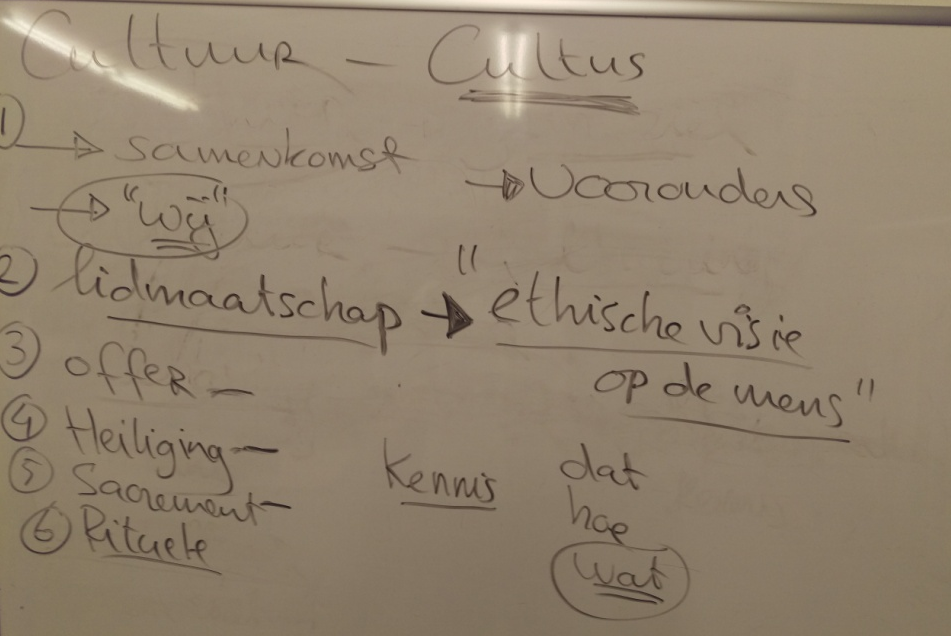 Cultuur - Cultus
① → samenkomst → Voorouders
→ "wij"
② lidmaatschap → "ethische visie
op de mens"
③ offer -
④ Heiliging -
⑤ Sacrement -
⑥ Rituele
Kennis dat
hoe
wat